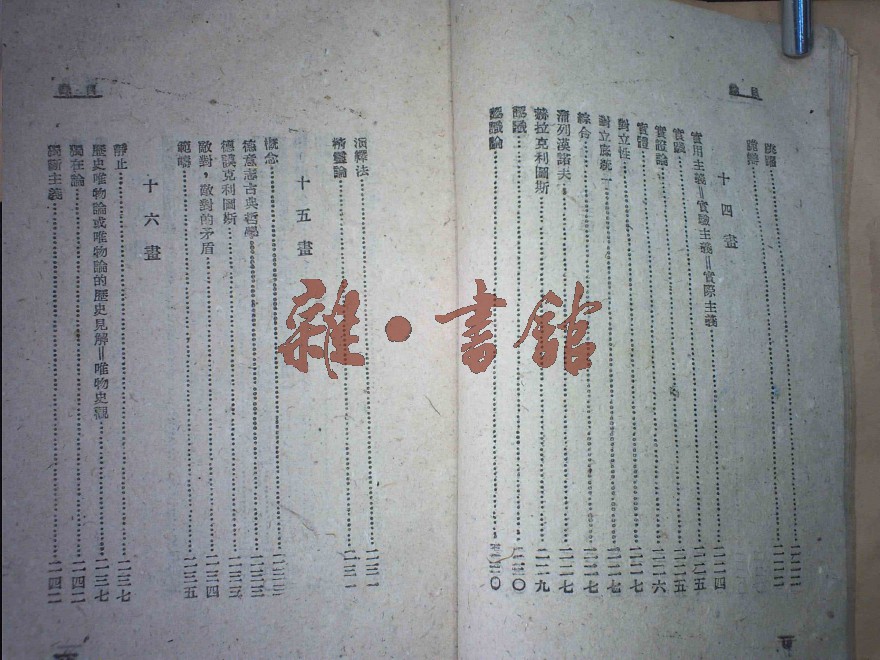 目錄
跳躍
詭辯
十四畫
實用主義＝實驗主義＝實際主義……二一四
實踐……二一五
實證論……二一六
實體……二一七
對立性……二一七
對立底統一……二一七
綜合……二一七
蒲列漢諾夫……二一七
赫拉克利圖斯……二一九
認識……二三〇
認識論……二三〇
目錄
演繹法……二三一
精靈論……二三一
十五畫
概念……二三三
德意志古典哲學……二三三
德謨克利圖斯……二三三
敵對，敵對的矛盾……二三四
範疇……二三五
十六畫
靜止……二三七
歷史唯物論或唯物論的歷史見解＝唯物史觀……二三七
獨在論……二四二
獨斷主義……二四二
雜·書館